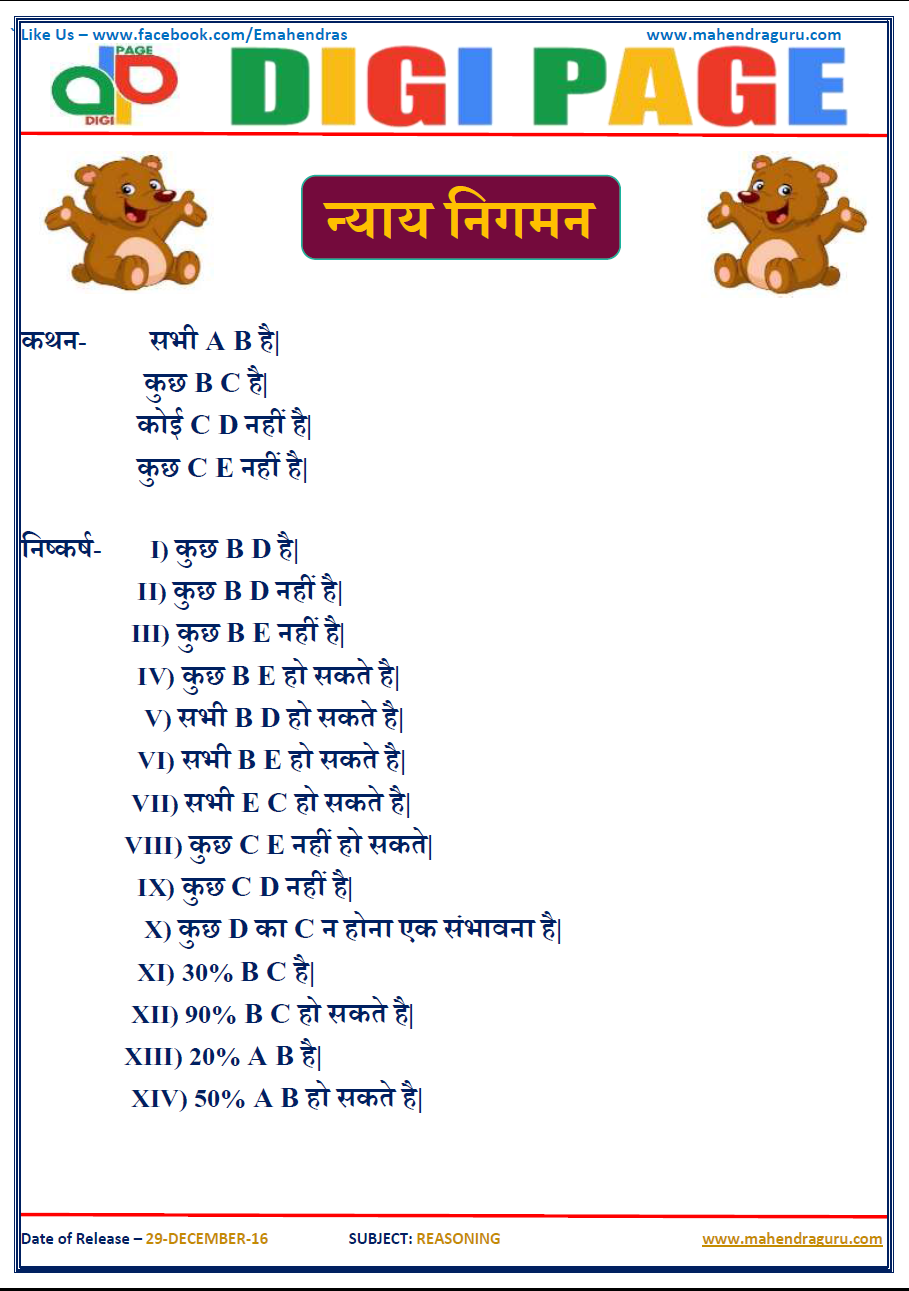 ` Like Us – www.facebook.com/Emahendras www.mahendraguru.com
PAGE
DIGI
DIGI PAGE
न्याय निगमन
कथन- सभी A B है|
कुछ B C है|
कोई C D नहीं है|
कुछ C E नहीं है|
निष्कर्ष- I) कुछ B D है|
II) कुछ B D नहीं है|
III) कुछ B E नहीं है|
IV) कुछ B E हो सकते है|
V) सभी B D हो सकते है|
VI) सभी B E हो सकते है|
VII) सभी E C हो सकते है|
VIII) कुछ C E नहीं हो सकते|
IX) कुछ C D नहीं है|
X) कुछ D का C न होना एक संभावना है|
XI) 30% B C है|
XII) 90% B C हो सकते है|
XIII) 20% A B है|
XIV) 50% A B हो सकते है|
Date of Release – 29-DECEMBER-16 SUBJECT: REASONING www.mahendraguru.com